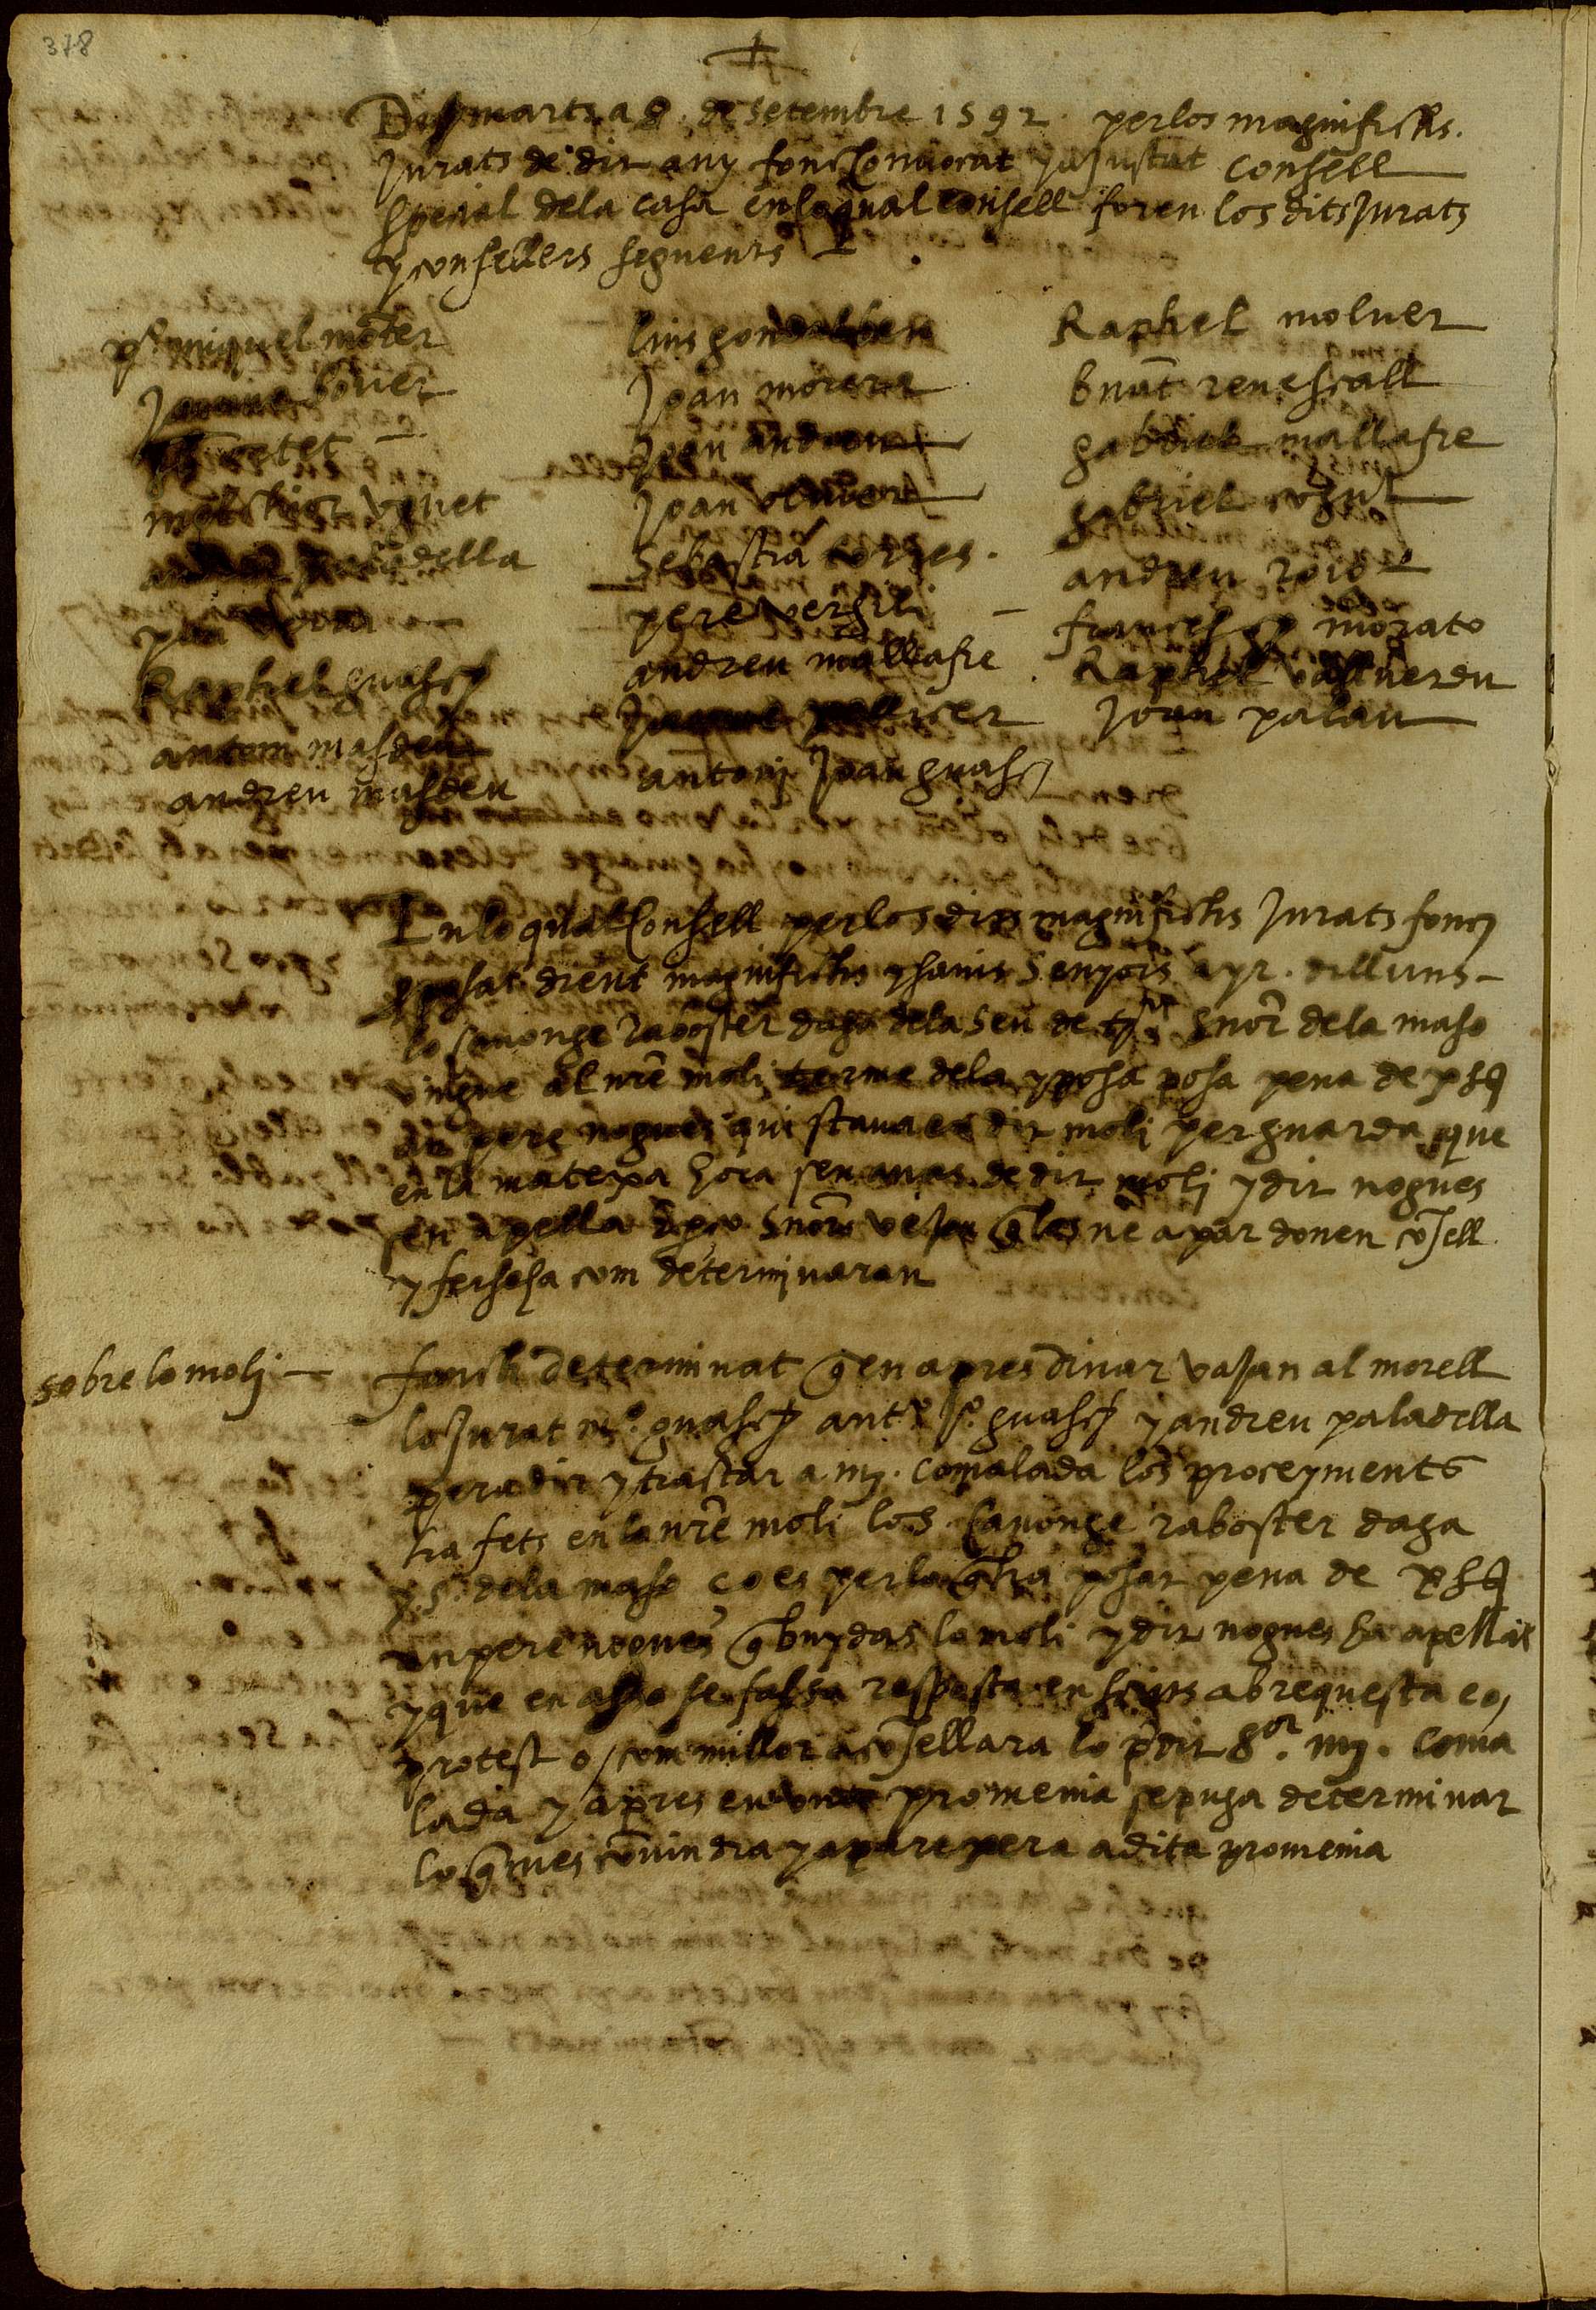 378
marts a 8. de setembre 1592. per los magnifichs.
Jurats de dit any fonch convocat y ajustat consell
special de la casa en lo qual consell foren los dits Jurats
y consellers seguents
pe. miquel moter
Jaume bover
melchior vonet
paladella
Raphel guasch
antoni masdeu
andreu masdeu
luis
Joan morera
Joan andreu
Joan
Sebastia torres.
pere vergili
andreu mallafre
Jaume pellicer
antonj Joan guasch
Raphel moluer
bnat reneschall
gabriel mallafre
gabriel
andreu roio
francesch morato
Raphel vallverdu
Joan palau
En lo qual Consell per los dits magnifichs Jurats fonch
posat dient magnifichs y savis senyors ayr. dilluns
lo canonge raboster daga de la Seu de Snor de la maso
vingue al nre moli terme de la y posa posa pena de
pere nogues qui stava en dit moli per guarda que
en la matexa hora sen anas de dit molj y dit nogues
sen apella Snors vejen q los ne apar donen cosell
y fershasa com determinaran
sobre lo molj
fonch determinat q en apres dinar vajan al morell
lo Jurat mo. guasch anto jo. guasch y andreu paladella
pera dir y tractar a mj. comalada los proceyments
ha fets en lo nre moli lo s. Canonge raboster daga
y sr. de la maso ço es per lo q ha posat pena de
en pere nogues q buydas lo moli y dit nogues ha apellat
y que en asso se fassa resposta en scrits ab requesta eo,
protest o com millor acosellara lo pdit 8or. mj. coma
lada y apres en promenia se puga determinar
lo q mes covindra y aparexera a dita promenia